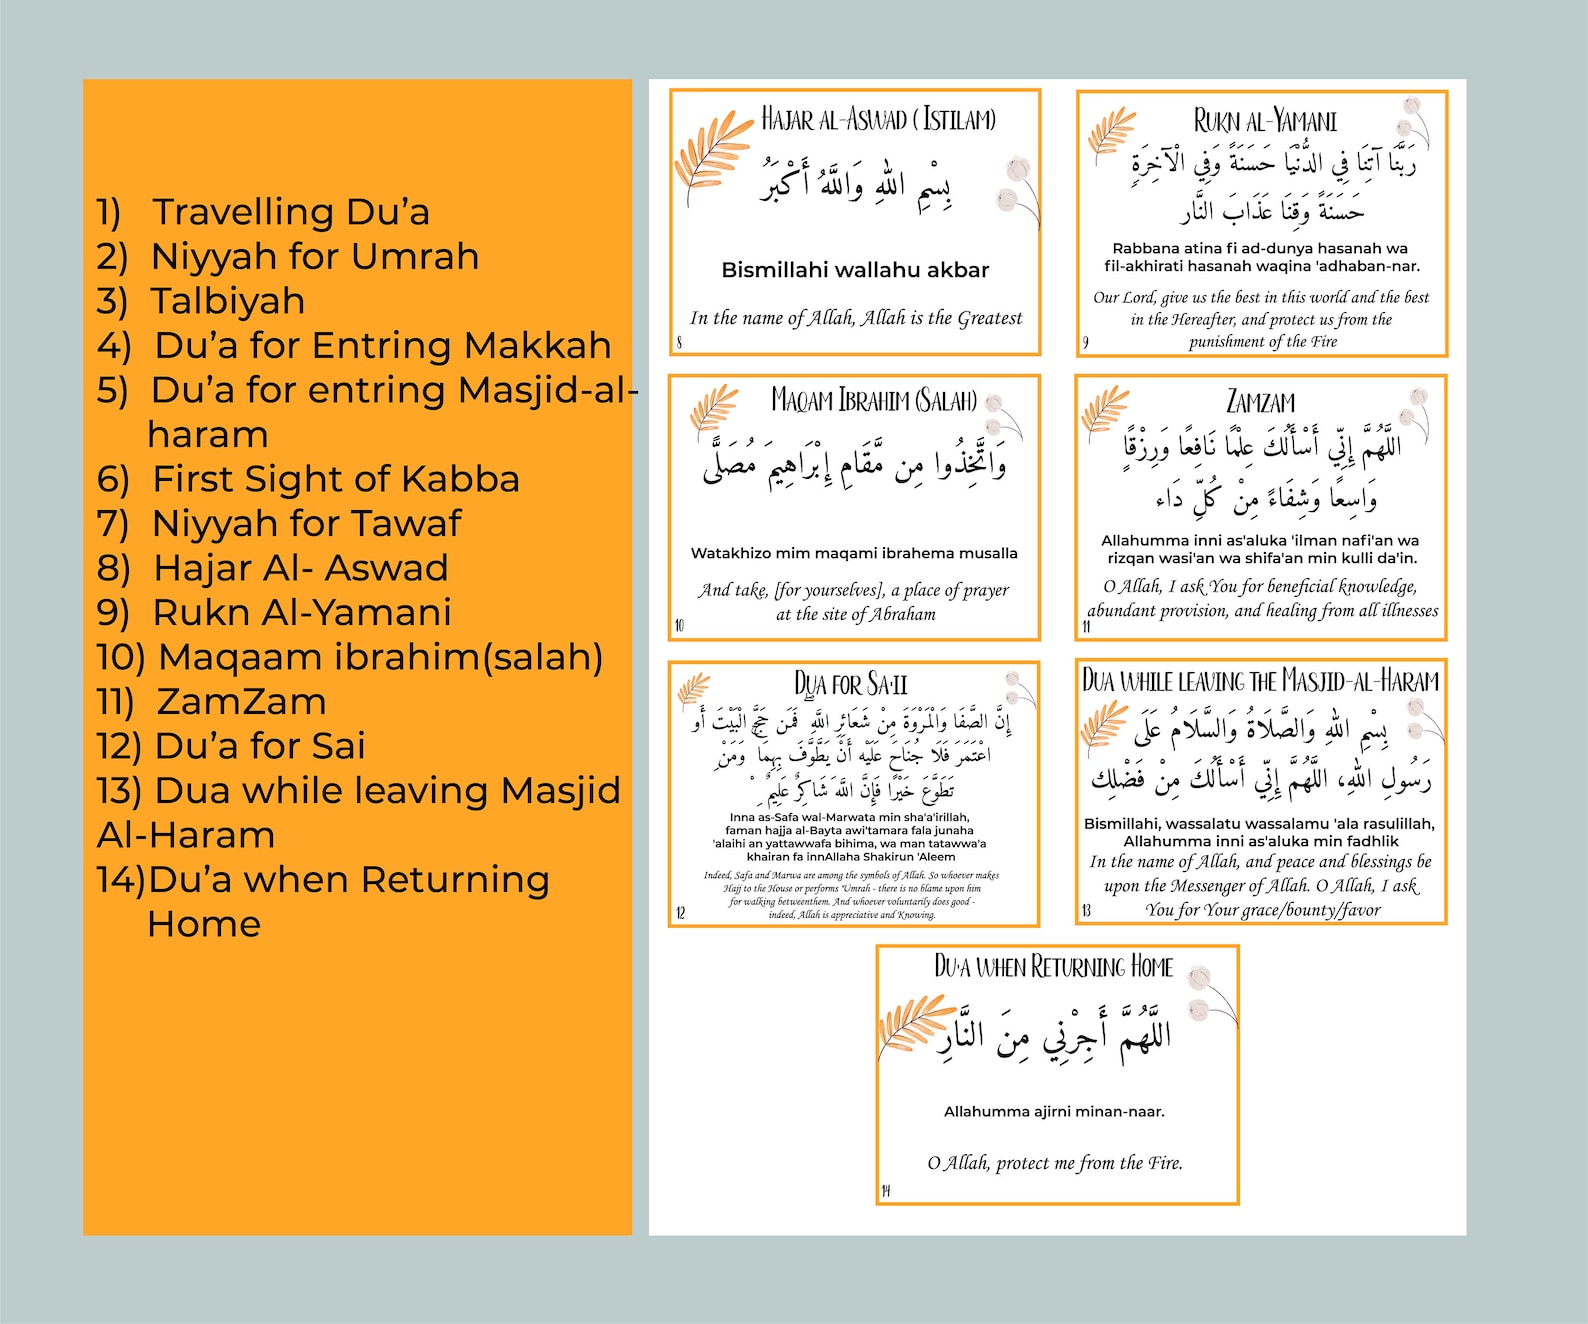 1) Travelling Du’a
2) Niyyah for Umrah
3) Talbiyah
4) Du’a for Entring Makkah
5) Du’a for entring Masjid-al-
haram
6) First Sight of Kabba
7) Niyyah for Tawaf
8) Hajar Al- Aswad
9) Rukn Al-Yamani
10) Maqaam ibrahim(salah)
11) ZamZam
12) Du’a for Sai
13) Dua while leaving Masjid
Al-Haram
14)Du’a when Returning
Home
Hajar al-Aswad ( Istilam)
بِسْمِ اللهِ وَاللَّهُ أَكْبَرُ
Bismillahi wallahu akbar
In the name of Allah, Allah is the Greatest
8
Rukn al-Yamani
رَبَّنَا آتِنَا فِي الدُّنْيَا حَسَنَةً وَفِي الْآخِرَةِ
حَسَنَةً وَقِنَا عَذَابَ النَّار
Rabbana atina fi ad-dunya hasanah wa
fil-akhirati hasanah waqina 'adhaban-nar.
Our Lord, give us the best in this world and the best
in the Hereafter, and protect us from the
punishment of the Fire
9
Maqam Ibrahim (Salah)
وَاتَّخِذُوا مِن مَّقَامِ إِبْرَاهِيمَ مُصَلًّى
Watakhizo mim maqami ibrahema musalla
And take, [for yourselves], a place of prayer
at the site of Abraham
10
Zamzam
اللَّهُمَّ إِنِّي أَسْأَلُكَ عِلْمًا نَافِعًا وَرِزْقًا
وَاسِعًا وَشِفَاءً مِنْ كُلِّ دَاء
Allahumma inni as'aluka 'ilman nafi'an wa
rizqan wasi'an wa shifa'an min kulli da'in.
O Allah, I ask You for beneficial knowledge,
abundant provision, and healing from all illnesses
11
Dua for Sa'ii
إِنَّ الصَّفَا وَالْمَرْوَةَ مِنْ شَعَائِرِ اللَّهِ ۖ فَمَن حَجَّ الْبَيْتَ أَو
اعْتَمَرَ فَلَا جُنَاحَ عَلَيْه أَنْ يَطَّوَّفَ بِهِمَا ۚ وَمَنْ
تَطَوَّعَ خَيْرًا فَإِنَّ اللَّهَ شَاكِرٌ عَلِيمٌ
Inna as-Safa wal-Marwata min sha'a'irillah,
faman hajja al-Bayta awi'tamara fala junaha
'alaihi an yattawwafa bihima, wa man tatawwa'a
khairan fa innAllaha Shakirun 'Aleem
Indeed, Safa and Marwa are among the symbols of Allah. So whoever makes
Hajj to the House or performs 'Umrah - there is no blame upon him
for walking betweenthem. And whoever voluntarily does good -
indeed, Allah is appreciative and Knowing.
12
Dua while leaving the Masjid-al-Haram
بِسْمِ اللهِ وَالصَّلَاةُ وَالسَّلَامُ عَلَى
رَسُولِ اللهِ، اللَّهُمَّ إِنِّي أَسْأَلُكَ مِنْ فَضْلِك
Bismillahi, wassalatu wassalamu 'ala rasulillah,
Allahumma inni as'aluka min fadhlik
In the name of Allah, and peace and blessings be
upon the Messenger of Allah. O Allah, I ask
You for Your grace/bounty/favor
13
Du'a when Returning Home
اللَّهُمَّ أَجِرْنِي مِنَ النَّارِ
Allahumma ajirni minan-naar.
O Allah, protect me from the Fire.
14